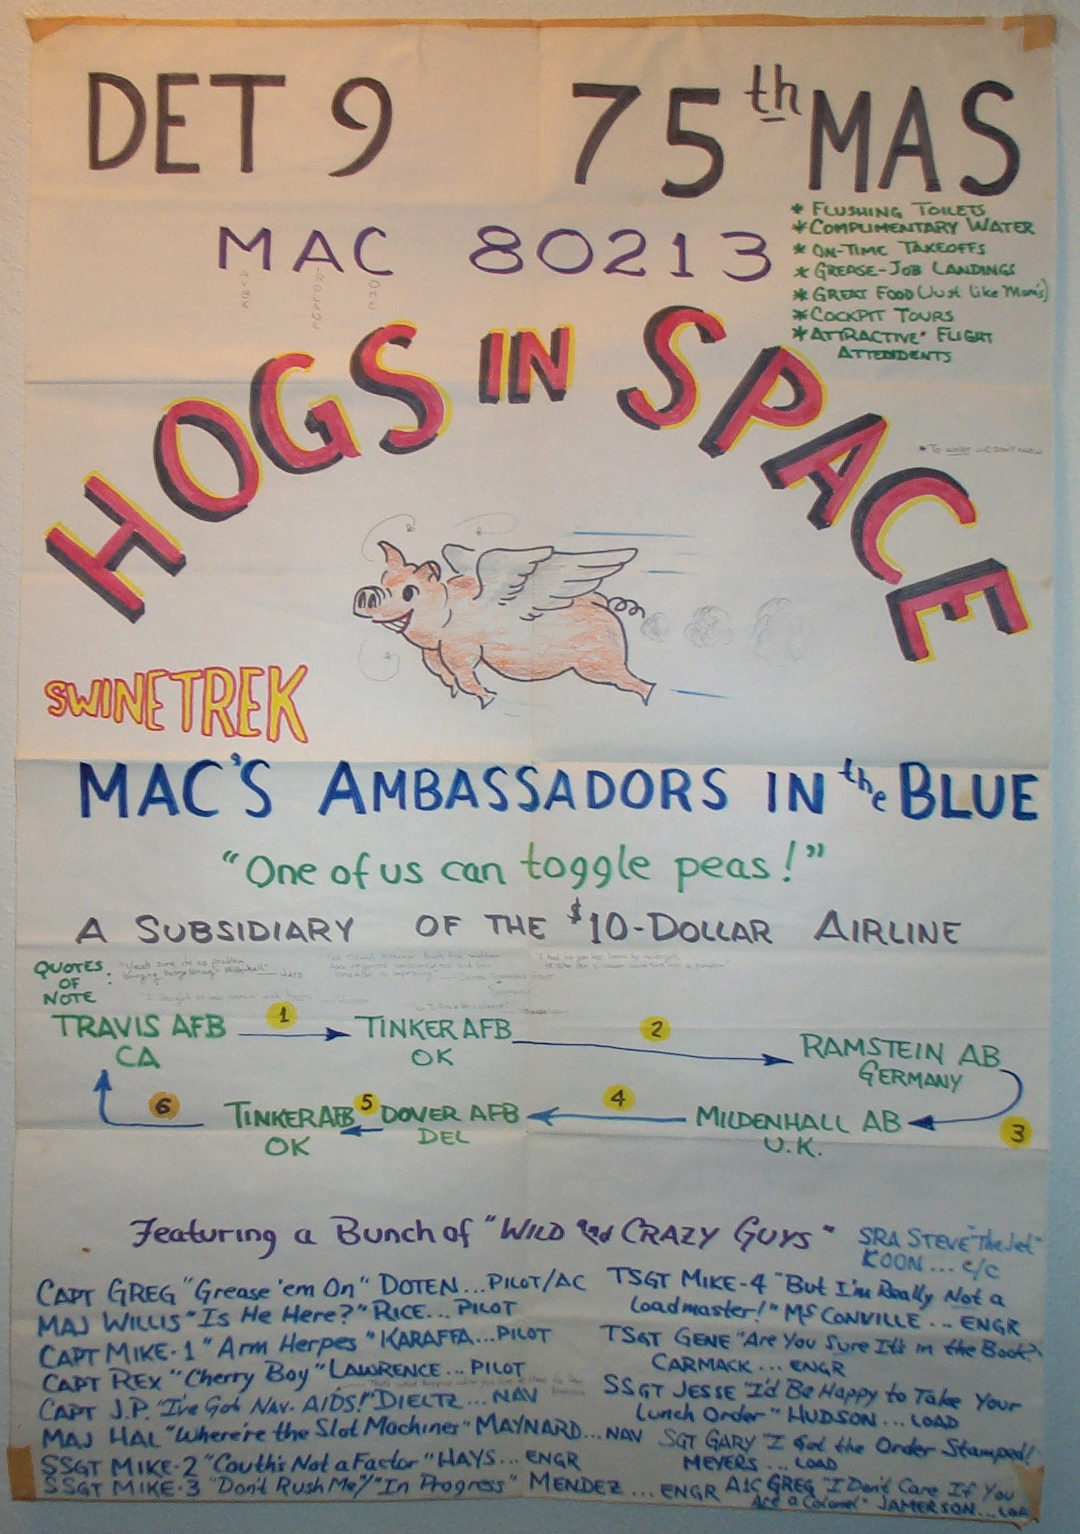 DET 9 75th MAS
MAC 80213
* FLUSHING TOILETS
* COMPLIMENTARY WATER
* ON-TIME TAKEOFFS
* GREASE-JOB LANDINGS
* GREAT FOOD (Just like Mom's)
* COCKPIT TOURS
* ATTRACTIVE* FLIGHT
ATTENDENTS
HOGS IN SPACE
SWINETREK
MAC'S AMBASSADORS IN the BLUE
"One of us can toggle peas!"
A SUBSIDIARY OF THE $10-DOLLAR AIRLINE
QUOTES
OF
NOTE :
TRAVIS AFB
CA
1
TINKER AFB
OK
2
RAMSTEIN AB
GERMANY
3
MILDENHALL AB
U.K.
4
DOVER AFB
DEL
5
TINKER AFB
OK
6
Featuring a Bunch of "WILD and CRAZY GUYS"
SRA STEVE "The Jet"
KOON... C/C
CAPT GREG "Grease 'em On" DOTEN...PILOT/AC
MAJ WILLIS "Is He Here?" RICE... PILOT
CAPT MIKE-1 "Arm Herpes" KARAFFA...PILOT
CAPT REX "Cherry Boy" LAWRENCE... PILOT
CAPT J.P. "I've Got Nav-AIDS!" DIELTZ... NAV
MAJ HAL "Where're the Slot Machines" MAYNARD...NAV
SSGT MIKE-2 "Couth's Not a Factor" HAYS... ENGR
SSGT MIKE-3 "Don't Rush Me"/"In Progress" MENDEZ... ENGR
TSGT MIKE-4 "But I'm Really Not a
Loadmaster!" McCONVILLE... ENGR
TSGT GENE "Are You Sure It's in the Book?"
CARMACK... ENGR
SSGT JESSE "I'd Be Happy to Take Your
Lunch Order" HUDSON... LOAD
SGT GARY "I Got the Order Stamped!"
MEYERS... LOAD
A1C GREG "I Don't Care If You
Are a Colonel" JAMERSON... LOAD